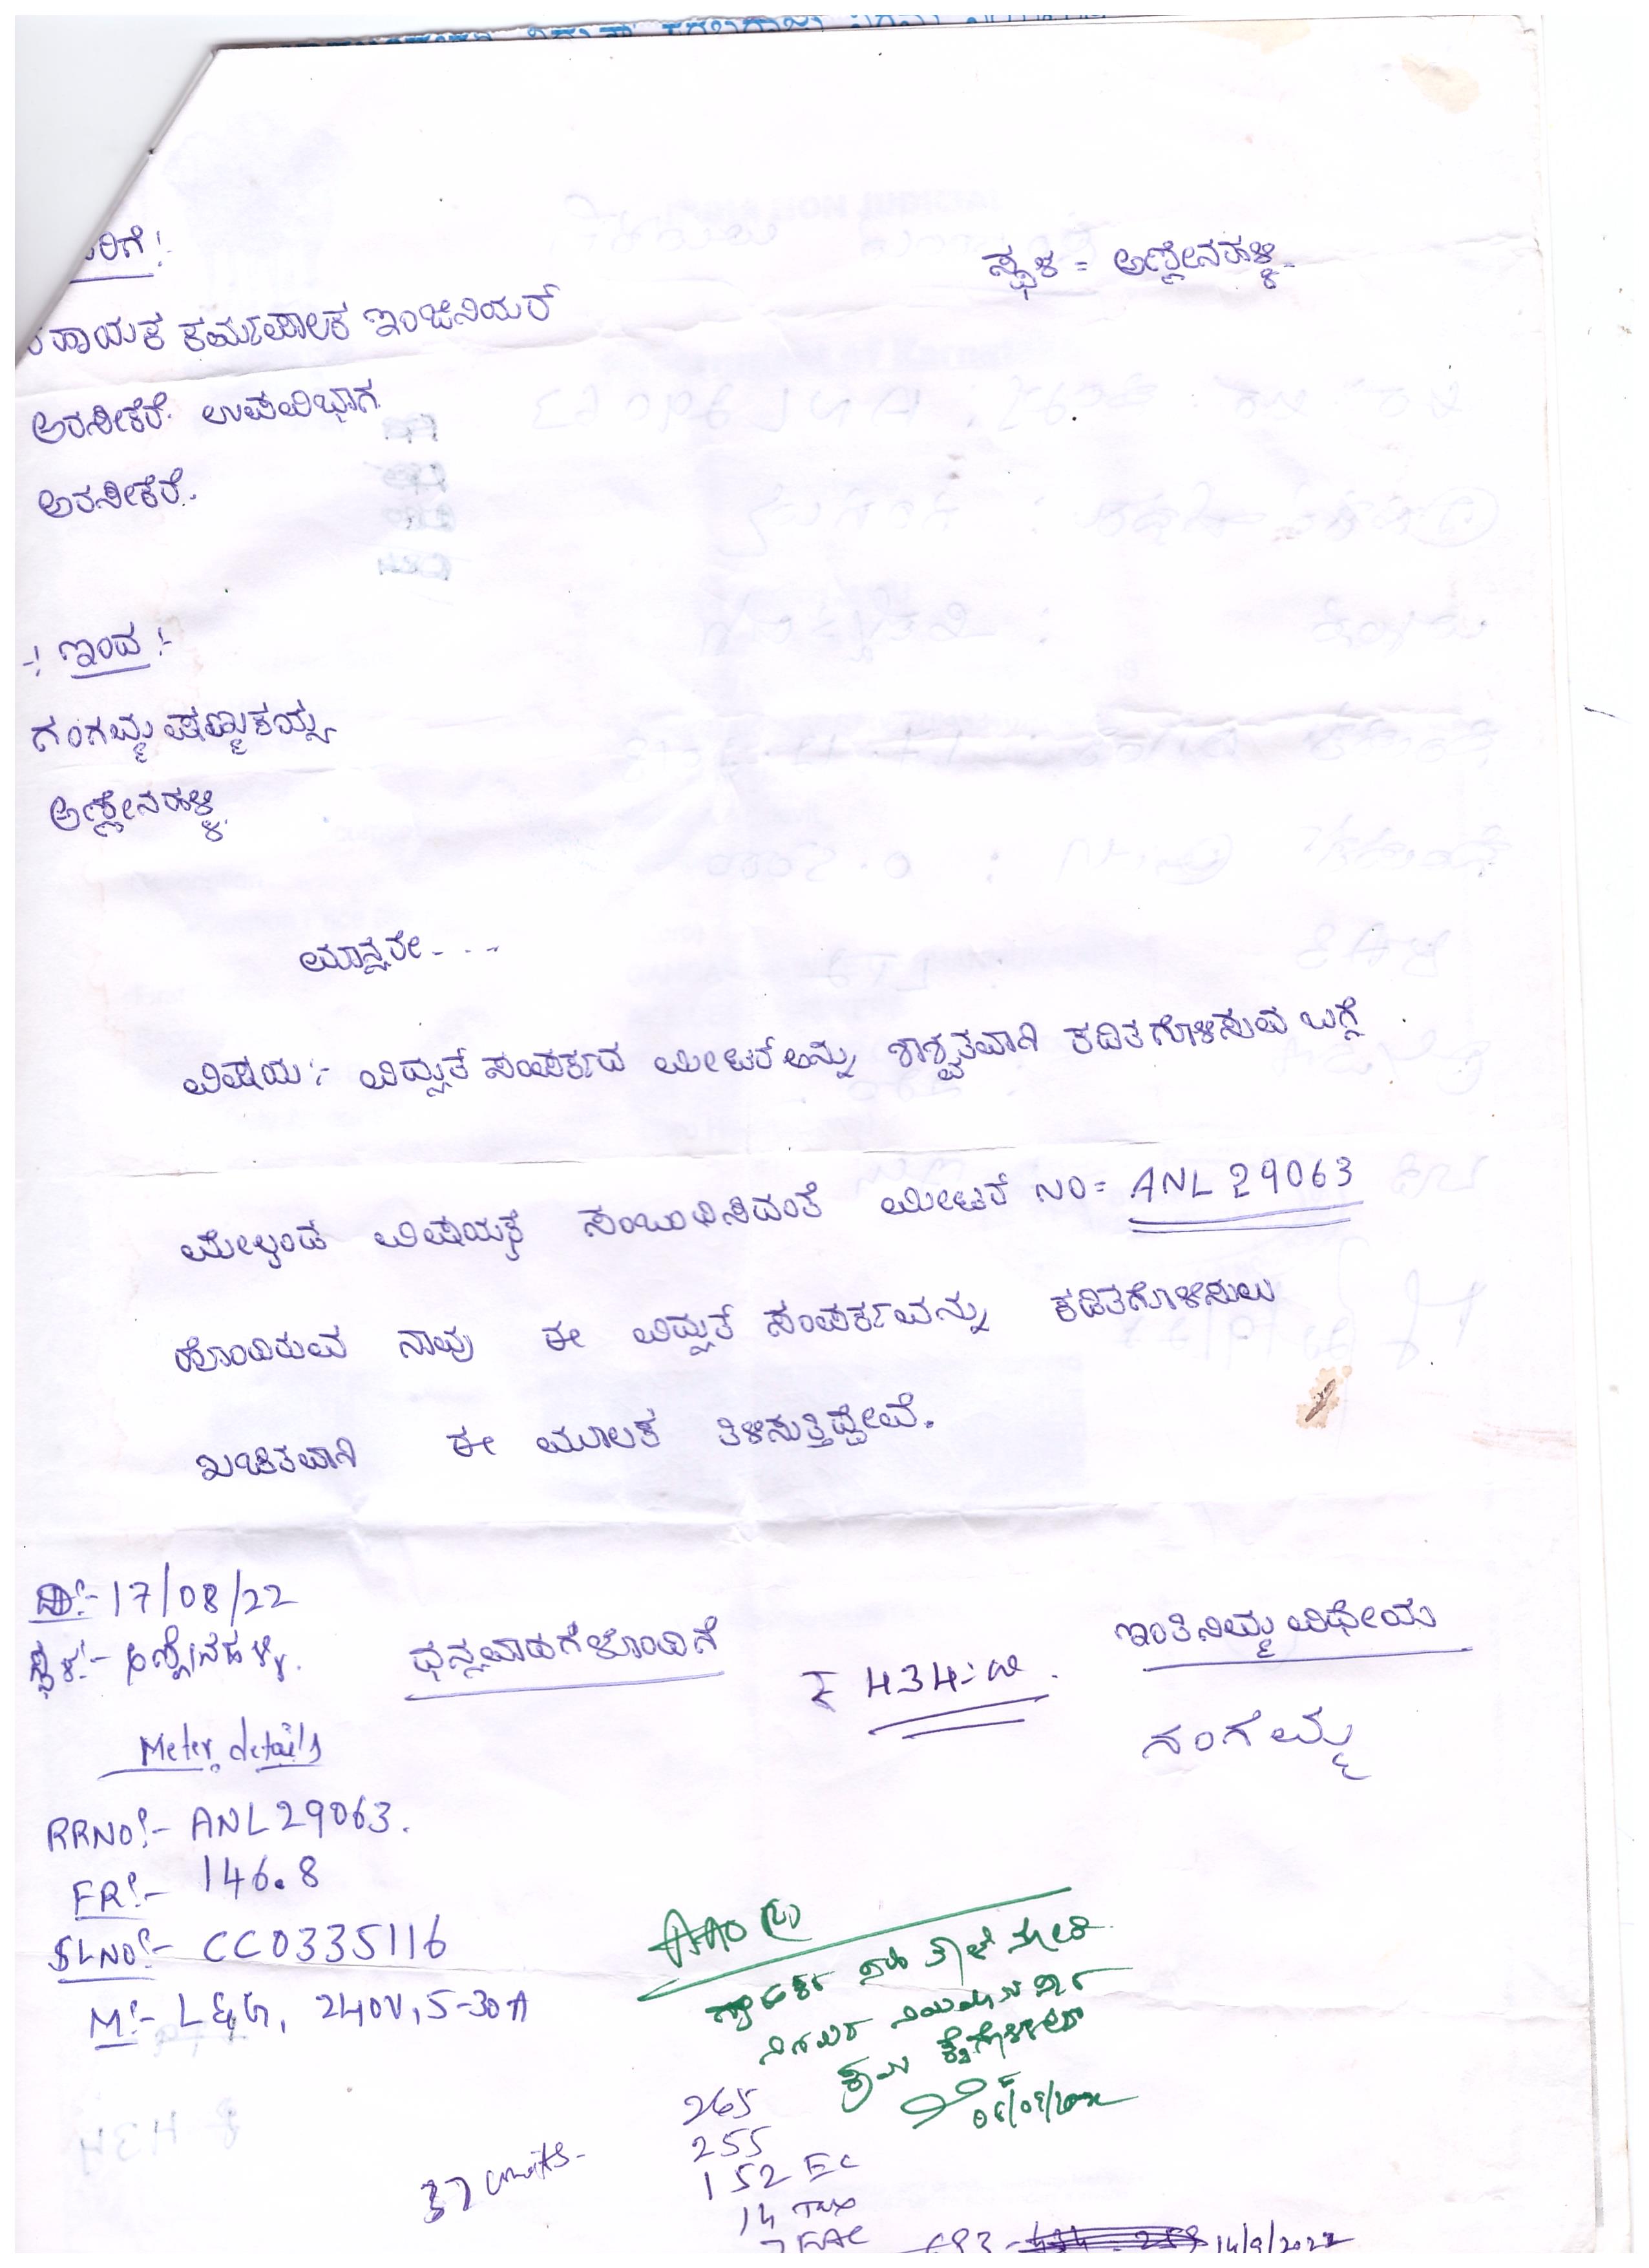 ರಿಗೆ :-
ಸ್ಥಳ = ಅಣ್ಣೇನಹಳ್ಳಿ.
ಹಾಯಕ ಕರ್ಯಪಾಲಕ ಇಂಜಿನಿಯರ್
ಅರಸೀಕೆರೆ ಉಪವಿಭಾಗ
ಅರಸೀಕೆರೆ.
-: ಇಂದ :-
ಗಂಗಮ್ಮ ಷಣ್ಮುಕಯ್ಯ
ಅಣ್ಣೇನಹಳ್ಳಿ
ಮಾನ್ಯರೇ - - -
ವಿಷಯ :- ವಿದ್ಯುತ್ ಸಂಪರ್ಕದ ಮೀಟರ್ ಅನ್ನು ಶಾಶ್ವತವಾಗಿ ಕಡಿತಗೊಳಿಸುವ ಬಗ್ಗೆ .
ಮೇಲ್ಕಂಡ ವಿಷಯಕ್ಕೆ ಸಂಬಂಧಿಸಿದಂತೆ ಮೀಟರ್ NO = ANL 29063
ಹೊಂದಿರುವ ನಾವು ಈ ವಿದ್ಯುತ್ ಸಂಪರ್ಕವನ್ನು ಕಡಿತಗೊಳಿಸಲು
ಖಚಿತವಾಗಿ ಈ ಮೂಲಕ ತಿಳಿಸುತ್ತಿದ್ದೇವೆ.
ದಿ:- 17/08/22
ಸ್ಥಳ:- ಅಣ್ಣೇನಹಳ್ಳಿ.
ಧನ್ಯವಾದಗಳೊಂದಿಗೆ
₹ 434=00
ಇಂತಿ ನಿಮ್ಮ ವಿಧೇಯ
ಗಂಗಮ್ಮ
Meter details
RRNO:- ANL29063.
FR:- 146.8
SLNO:- CC0335116
M:- L&G, 240V, 5-30A
AAO
ಕ್ರಮ ಕೈಗೊಳ್ಳಲು
37 units -
265
255
152 EC
14 Tax
7 FAC
14/9/2022